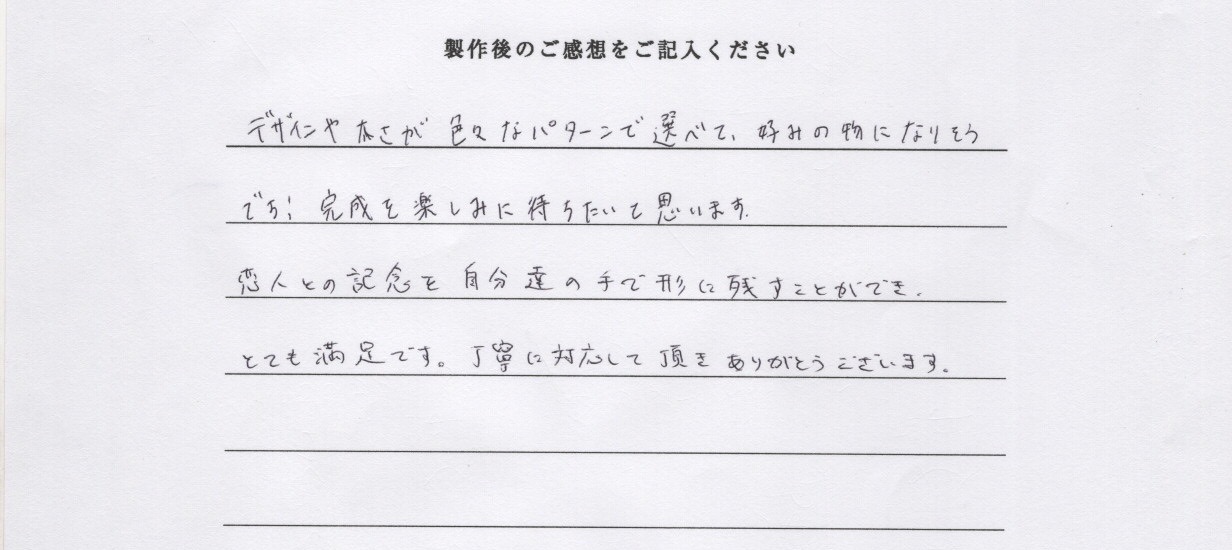 製作後のご感想をご記入ください
デザインや太さが色々なパターンで選べて、好みの物になりそう
です! 完成を楽しみに待ちたいと思います。
恋人との記念を自分達の手で形に残すことができ、
とても満足です。丁寧に対応して頂きありがとうございます。